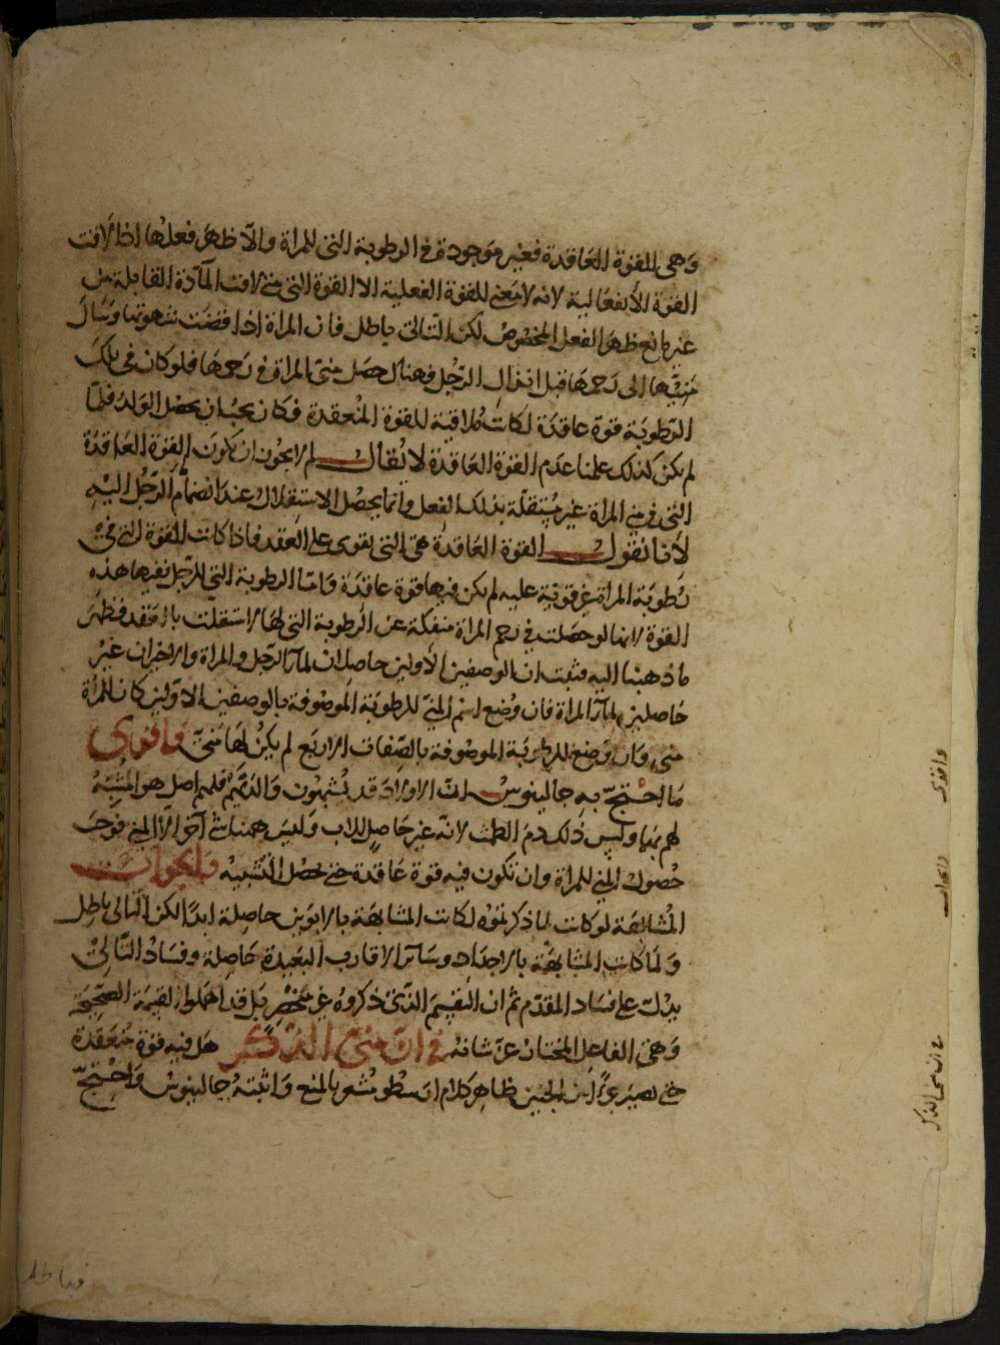 وهى القوة العاقدة فغير موجودة فى الرطوبة التى للمراة والا ظهر فعلها اذا لاقت
القوة الانفعالية لانه لا معنى للقوة الفعلية الا القوة التى متى لاقت المادة القابلة من
غير مانع ظهر الفعل المخصوص لكن التالى باطل فان المراة اذا افضت شهوتها وسال
منيها الى رحمها قبل انزال الرجل فهناك حصل منى المراة فى رحمها فلو كان فى تلك
الرطوبة قوة عاقدة لكانت ملاقية للقوة المنعقدة فكان يجب ان يحصل الولد فلما
لم يكن كذلك علمنا عدم القوة العاقدة لا يقال لم لا يجوز ان تكون القوة العاقدة
التى فى منى المراة غير مستقلة بذلك الفعل وانما يحصل الاستقلال عند انضمام الرجل اليه
لانا نقول القوة العاقدة هى التى تقوى على العقد فاذا كانت القوة التى فى
رطوبة المراة غير قوية عليه لم يكن فيها قوة عاقدة واما الرطوبة التى للرجل ففيها هذه
القوة لانها لو حصلت فى رحم المراة منفكة عن الرطوبة التى لها لاستقلت بالعقد فظهر
ما ذهبنا اليه فثبت ان الوصفين الاولين حاصلان لماء الرجل والمراة والاخيران غير
حاصلين لماء المراة فان وضع اسم المنى للرطوبة الموصوفة بالوصفين الاولين كان للمراة
منى وان وضع للرطوبة الموصوفة بالصفات الاربع لم يكن لها منى واقوى
ما احتج به جالينوس ان الاولاد قد يشبهون والديهم فلهم اصل هو المشبه
لهم بهما وليس ذلك دم الطمث لانه غير حاصل للاب وليس ههنا شئ آخر الا المنى فوجب
حصول المنى للمراة وان تكون فيه قوة عاقدة حتى يحصل التشبيه والجواب
المشابهة لو كانت لما ذكرتموه لكانت المشابهة بالابوين حاصلة ابدا لكن التالى باطل
ولما كانت المشابهة بالاجداد وسائر الاقارب البعيدة حاصلة وفساد التالى
يدل على فساد المقدم ثم ان التقسيم الذى ذكروه غير منحصر بل قد اهملوا القسمة الصحيحة
وهى الفاعل المختار عز شانه فى ان منى الذكر هل فيه قوة منعقدة
حتى يصير جزءا من الجنين ظاهر كلام ارسطو يشعر بالمنع واثبته جالينوس واحتج
واقوى
والجواب
فى ان منى الذكر